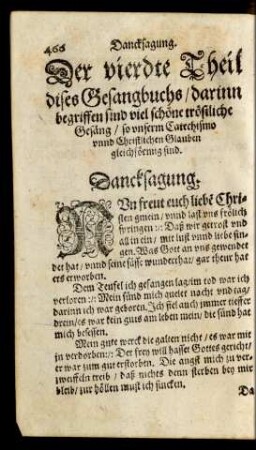 466 Dancksagung.
Der vierdte Theil
dises Gesangbuchs / darinn
begriffen sind viel schöne tröstliche
Gesäng / so vnserm Catechismo
vnnd Christlichen Glauben
gleichförmig sind.
Dancksagung.
NUn frewt euch liebẽ Chri-
sten gmein / vnnd last vns frölich
springen :/: Daß wir getrost vnd
all in ein / mit lust vnnd liebe sin-
gen. Was Gott an vns gewendet
det hat / vnnd seine süsse wunderthat / gar thewr hat
ers erworben.
Dem Teufel ich gefangen lag / im tod war ich
verloren :/: Mein sünd mich quelet nacht vnd tag /
darinn ich war geboren. Ich fiel auch immer tieffer
drein / es war kein guts am leben mein / die sünd hat
mich besessen.
Mein gute werck die galten nicht / es war mit
jn verdorben :/: Der frey will hasset Gottes gericht /
er war zum gut erstorben. Die angst mich zu ver-
zweiffeln treib / daß nichts denn sterben bey mir
bleib / zur höllen must ich sincken.
Da